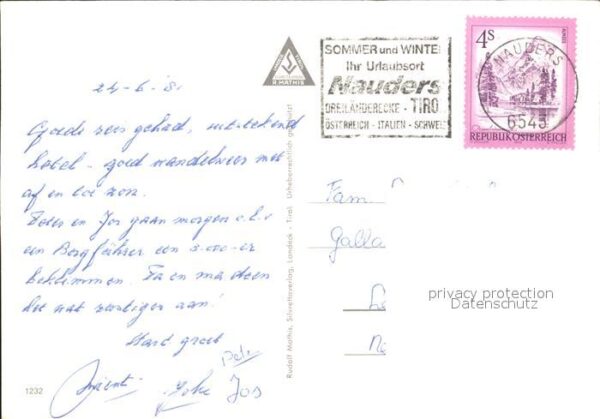 24-6-81
Goede reis gehad, uitstekend
hotel - goed wandelweer met
af en toe zon.
Peter en Jos gaan morgen o.l.v
een Bergführer een 3000-er
beklimmen. Pa en ma doen
het wat rustiger aan!
Hart. groet
Peter
Jos
1232
Rudolf Mathis, Silvrettaverlag, Landeck - Tirol. Urheberrechtlich geschützt
R. MATHIS
SOMMER und WINTER
Ihr Urlaubsort
Nauders
DREILÄNDERECKE - TIROL
ÖSTERREICH - ITALIEN - SCHWEIZ
NAUDERS
6543
4S
REPUBLIK ÖSTERREICH
Fam
Galla
privacy protection
Datenschutz